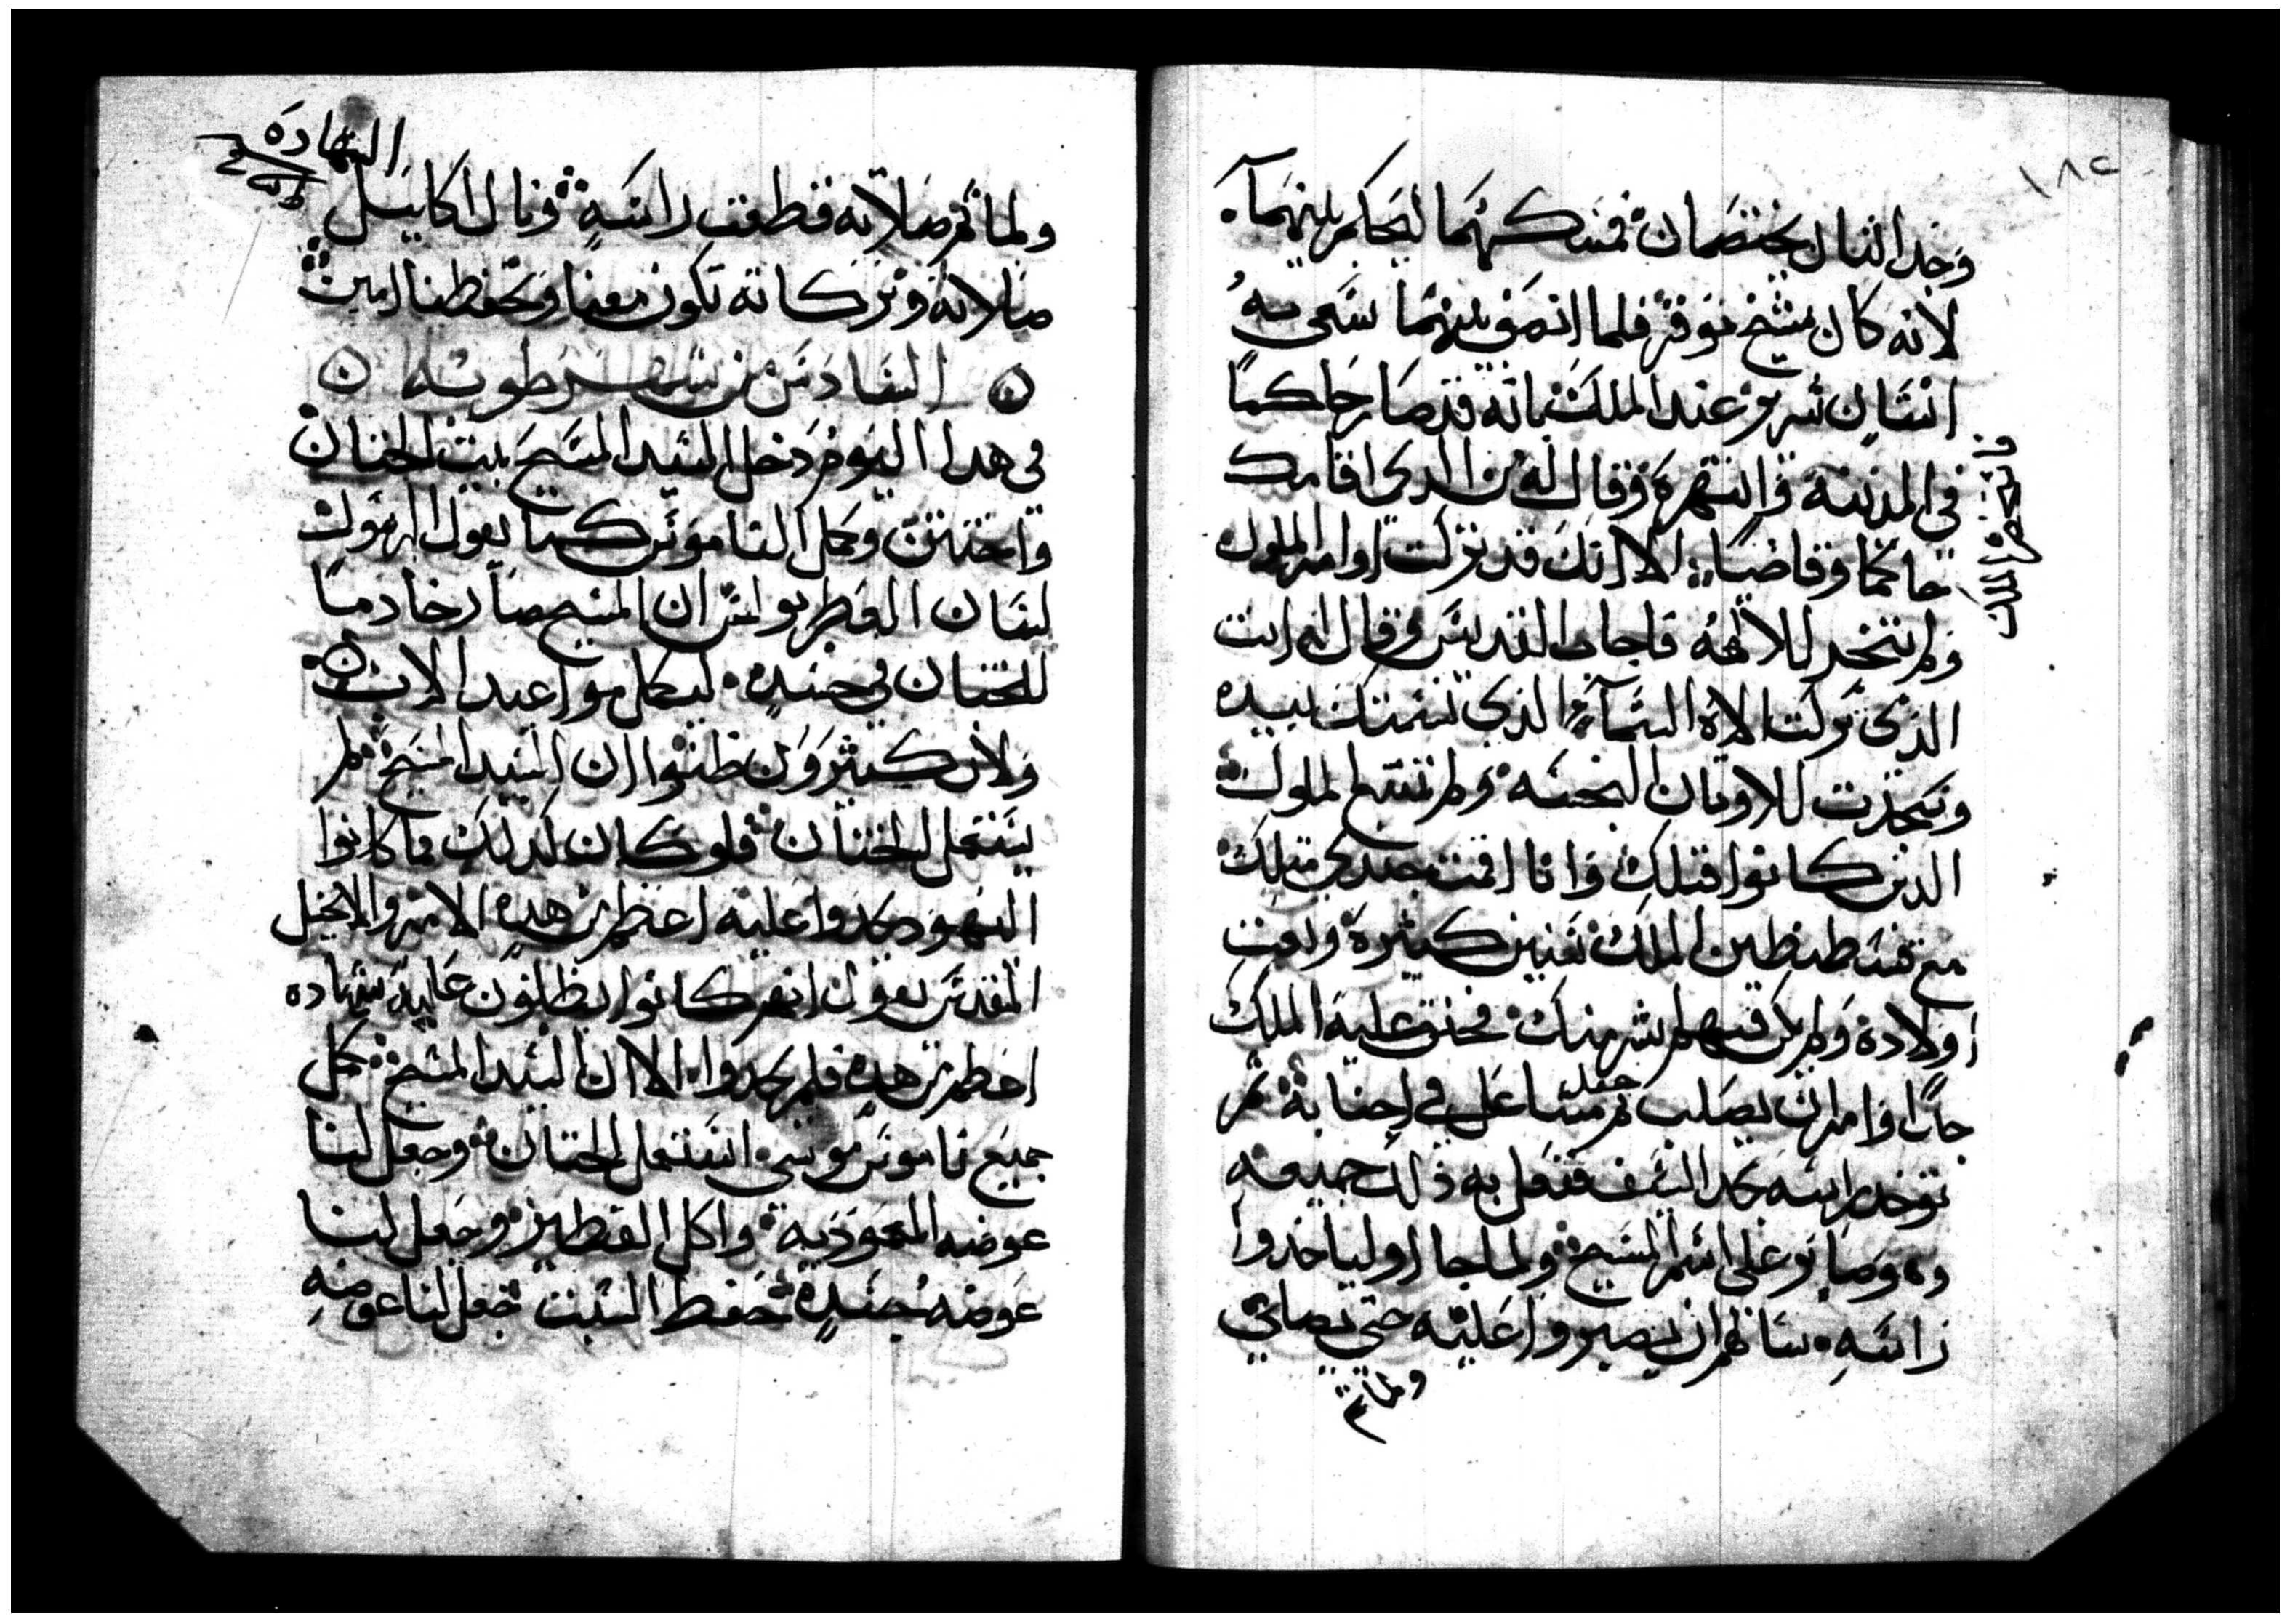 ١٨٢
وجدا اتنان يختصمان فمسكهما ليحاكم بينهما
لانه كان شيخ موقر فلما انصف بينهما سعى به
انسان شرير عند الملك بانه قد صار حاكما
في المدينة وانتهره وقال له من الدي اقامك
فاستحضره الملك
حاكما وقاضيا الا انك قد تركت اوامر الملوك
ولم تسجد للالهه فاجاب القديس وقال له انت
الذي تركت الاه السماء الذي نسمتك بيده
وسجدت للاوتان النجسه ولم تتبع الملوك
الدين كانوا قبلك وانا اقمت جندي متلك
مع قسطنطين الملك سنين كثيرة ورايت
اولاده ولم يكن فيهم شر منك فحنق عليه الملك
جدا وامر ان يصلب ثم جعل مشاعل في اجنابه ثم
توخد راسه بحد السيف ففعل به ذلك جميعه
وهو صابر على اسم المسيح ولما جاا اوليك ياخدوا
راسه سالهم ان يصبروا عليه حتى يصلي
ولما تم
الشهادة
ولما تم صلاته قطعت راسه ونال اكليل
صلاته وبركاته تكون معنا وتحفظنا امين
السادس من شهر طوبه
في هدا اليوم دخل السيد المسيح بيت الختان
واختتن وكمل الناموس كما يقول الرسول
لسان العطر بولس ان المسيح صار خادما
للختان في جسده ليكمل مواعيد الاب
ولان كثيرون ظنوا ان السيد المسيح لم
يستعمل الختان فلو كان كدلك ما كانوا
اليهود يجدوا عليه اعظم من هده الامر والانجيل
المقدس يقول انهم كانوا يطلبون عليه شهاده
اعظم من هده فلم يجدوا الا ان السيد المسيح كمل
جميع ناموس موسى استعمل الختان وجعل لنا
عوضه المعموديه واكل الفطير وجعل لنا
عوضه جسده حفظ السبت جعل لنا عوضه